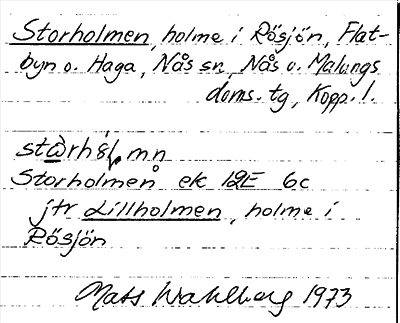 Storholmen, holme i Rösjön, Flat-
byn o. Haga, Nås sn, Nås o. Malungs
doms. tg, Kopp. l.
Storholmen ek 12E 6c
jfr Lillholmen, holme i
Rösjön
Mats Wahlberg 1973